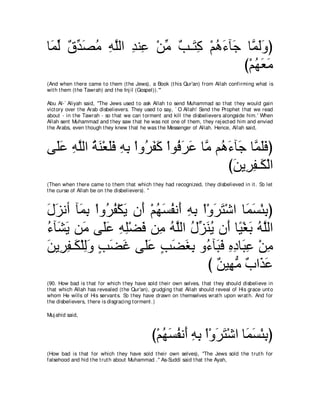 (وَلَمَّا جَآءَهُمْ كِتَـبٌ مِّنْ عِندِ اللَّهِ مُصَدِّقٌ لِّمَا
مَعَهُمْ)
(And when there came to them (the Jews), a Book (this Qur'an) from Allah confirming what is
with them (the Tawrah) and the Injil (Gospel)).''
Abu Al-`Aliyah said, "The Jews used to ask Allah to send Muhammad so that they would gain
victory over the Arab disbelievers. They used to say, `O Allah! Send the Prophet that we read
about - in the Tawrah - so that we can torment and kill the disbelievers alongside him.' When
Allah sent Muhammad and they saw that he was not one of them, they rejected him and envied
the Arabs, even though they knew that he was the Messenger of Allah. Hence, Allah said,
(فَلَمَّا جَآءَهُم مَّا عَرَفُواْ كَفَرُواْ بِهِ فَلَعْنَةُ اللَّهِ عَلَى
الْكَـفِرِينَ)
(Then when there came to them that which they had recognized, they disbelieved in it. So let
the curse of Allah be on the disbelievers). "
(بِئْسَمَا اشْتَرَوْاْ بِهِ أَنفُسَهُمْ أَن يَكْفُرُواْ بِمَآ أَنزَلَ
اللَّهُ بَغْيًا أَن يُنَزِّلُ اللَّهُ مِن فَضْلِهِ عَلَى مَن يَشَآءُ
مِنْ عِبَادِهِ فَبَآءُو بِغَضَبٍ عَلَى غَضَبٍ وَلِلْكَـفِرِينَ
عَذَابٌ مُّهِينٌ )
(90. How bad is that for which they have sold their own selves, that they should disbelieve in
that which Allah has revealed (the Qur'an), grudging that Allah should reveal of His grace unto
whom He wills of His servants. So they have drawn on themselves wrath upon wrath. And for
the disbelievers, there is disgracing torment.)
Mujahid said,
(بِئْسَمَا اشْتَرَوْاْ بِهِ أَنفُسَهُمْ)
(How bad is that for which they have sold their own selves), "The Jews sold the truth for
falsehood and hid the truth about Muhammad." As-Suddi said that the Ayah,